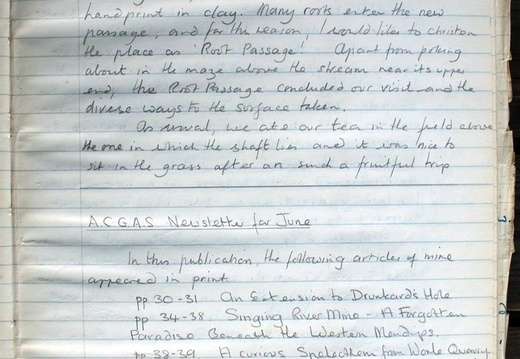 handprint in clay. Many roots enter the new
passage, and for this reason, I would like to christen
the place as 'Root Passage'! Apart from poking
about in the maze above the stream near its upper
end, the Root Passage concluded our visit and the
diverse ways to the surface taken.
As usual, we ate our tea in the field above
the one in which the shaft lies and it was nice to
sit in the grass after an such a fruitful trip
A.C.G.A.S Newsletter for June
In this publication the following articles of mine
appeared in print
pp 30-31 An Extension to Drunkard's Hole
pp 34-38. Singing River Mine - A Forgotten
Paradise Beneath the Western Mendips.
pp 38-39. A curious Speleothem from Worle Quarry